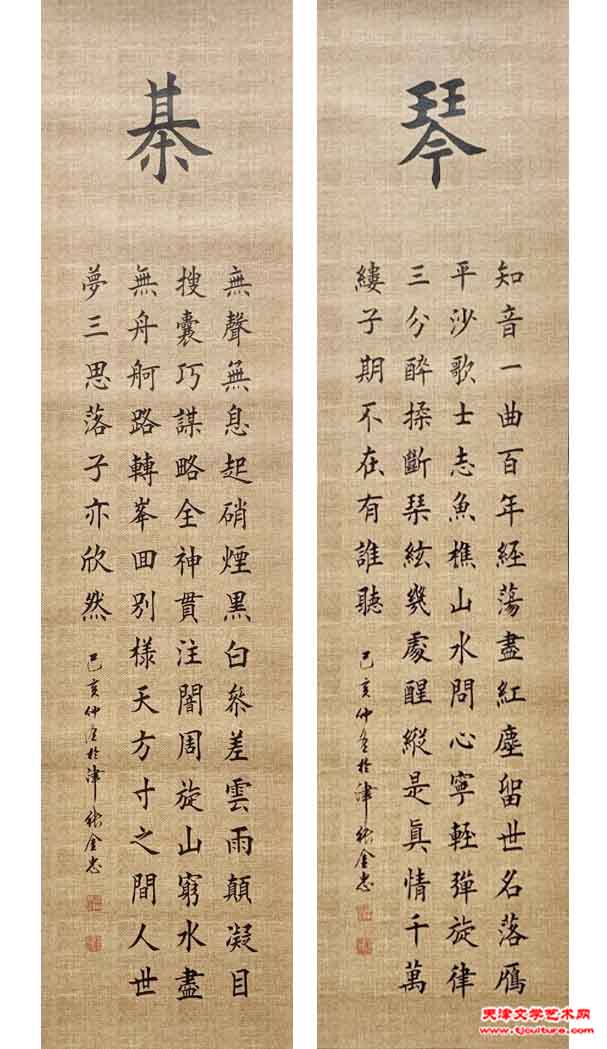 琴
知音一曲百年經蕩盡紅塵留世名落鴈
平沙歌士志魚樵山水問心寧輕彈旋律
三分醉揉斷琴絃幾處醒縱是真情千萬
縷子期不在有誰聽
己亥仲冬於津張金忠
棊
無聲無息起硝煙黑白參差雲雨顛凝目
搜囊巧謀略全神貫注闇周旋山窮水盡
無舟舸路轉峯回別樣天方寸之間人世
夢三思落子亦欣然
己亥仲冬於津張金忠
天津文学艺术网
www.tjculture.com